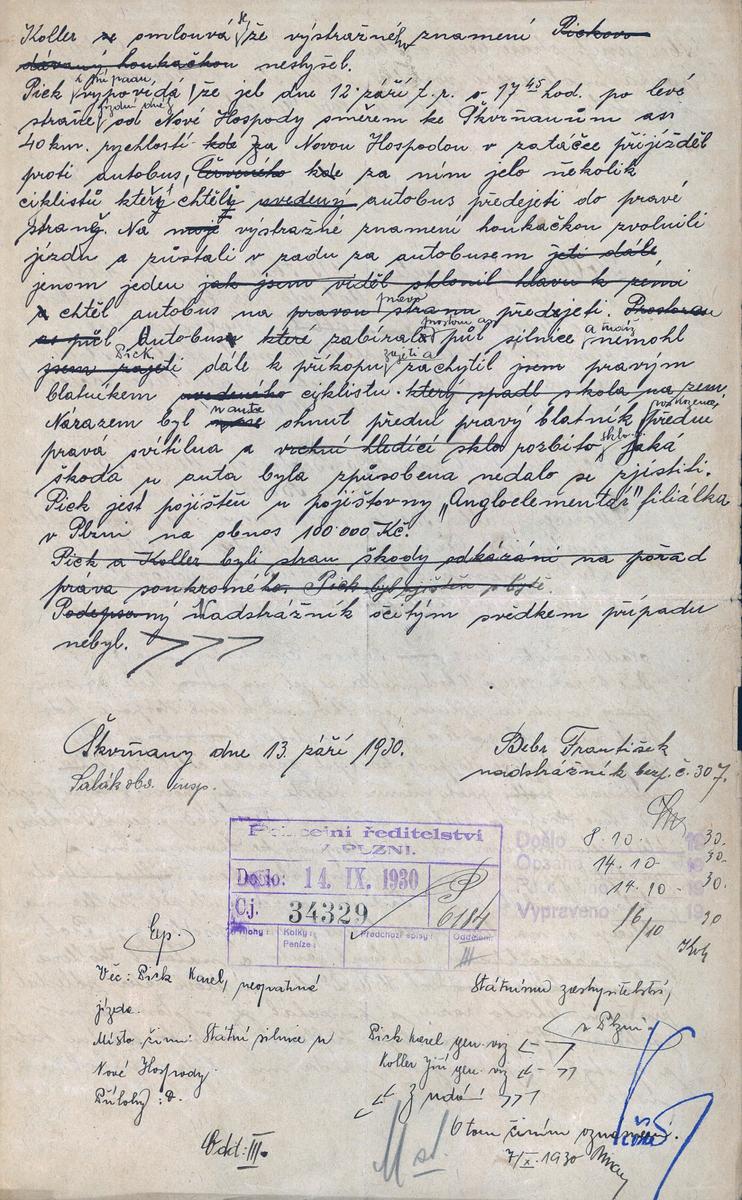 Koller se omlouvá, že výstražného znamení Pickovo
dávaný houkačkou neslyšel.
Pick k případu vypovídá, že jel dne 12. září t.r. o 17 45 hod. po levé
straně jízdní dráhy od Nové Hospody směrem ke Škvrňanům asi
40 km. rychlostí kde za Novou Hospodou v zatáčce přijížděl
proti autobus, červeného kde za ním jelo několik
ciklistů, kteří chtěli uvedený autobus předejeti do pravé
straně. Na moje výstražné znamení houkačkou zvolnili
jízdu a zůstali v zadu za autobusem jeti dále
jenom jeden jak jsem viděl sklonil hlavu k zemi
a chtěl autobus na pravou pravo stranu předejeti. Prostoru
as půl Autobus které zabíral prostoru as půl silnice aináč nemohl
jsem zajeti Pick dále k příkopu zajeti a zachytil jsem pravým
blatníkem uvedeného ciklistu. který spadl skola na zem.
Nárazem byl u auta ohnut předni pravý blatník, přední
pravá svítilna a vrchní hledící sklo rozbito sklo. jaká
škoda u auta byla způsobena nedalo se zjistiti.
Pick jest pojištěn u pojišťovny „Angloelementár" filiálka
v Plzni na obnos 100.000 Kč.
Pick a Koller byli stran škody odkázáni na pořad
práva soukromého. Pick byl zjištěn v bytě.
Podepsaný Nadstrážník očitým svědkem případu
nebyl.
Škvrňany dne 13. září 1930.
Bebr František
Salák obv. insp.
nadstrážník bezp. č. 307.
Policejní ředitelství
v PLZNI.
Došlo: 14. IX. 1930
Čj. 34329
P 6184
Přílohy: Kolky: Peníze: Předchozí spisy: Oddělení:
III
Došlo 8. 10. 1930.
Opsáno 14. 10. 1930.
14. 10. 1930.
Vypraveno 16/10 1930
Exp.
Věc: Pick Karel, neopatrná
jízda.
Místo činu: Státní silnice u
Nové Hospody.
Přílohy: 0.
Státnímu zastupitelství,
v Plzni
Pick Karel gen. viz
Koller Jiří gen. viz
Z udání
O tom činím oznámení.
7/X. 1930
Odd: III.